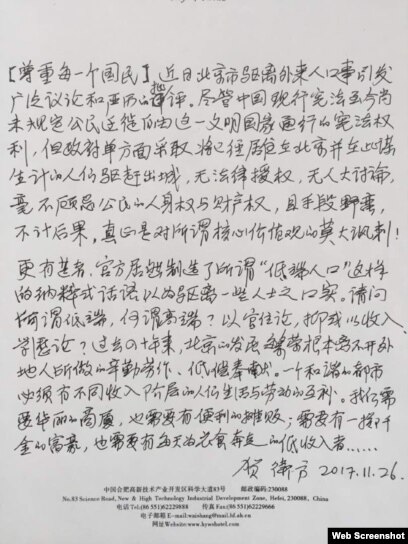 【尊重每一个国民】近日北京市驱离外来人口事引发
广泛议论和严厉的批评。尽管中国现行宪法至今尚
未规定公民迁徙自由这一文明国家通行的宪法权
利，但政府单方面采取将已经居住在北京并在此谋
生计的人们驱赶出城，无法律授权，无人大讨论，
毫不顾忌公民的人身权与财产权，且手段野蛮，
不计后果，真正是对所谓核心价值观的莫大讽刺！
更有甚者，官方居然制造了所谓“低端人口”这样
的纳粹式话语以为驱离一些人士之口实。请问
何谓低端，何谓高端？以官位论，抑或以收入、
学历论？过去几十年来，北京的发展与繁荣根本离不开外
地人所做的辛勤劳作、低偿奉献。一个和谐的都市
必须有不同收入阶层的人们生活与劳动的互利。我们需
要华丽的商厦，也需要有便利的摊贩；需要有一掷千
金的富豪，也需要有每天为衣食奔走的低收入者……
贺卫方 2017.11.26.
中国合肥高新技术产业开发区科学大道83号 邮政编码:230088
No.83 Science Road, New & High Technology Industrial Development Zone, Hefei, 230088, China
电话Tel:(86 551)62229888 传真Fax:(86 551)62229666
电子邮箱E-mail:waishang@mail.hf.ah.cn
网址Website:www.hywshotel.com
Web Screenshot